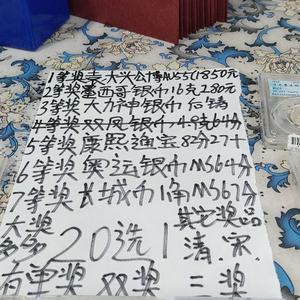 1等奖袁大头公博AU55(1850元
2等奖墨西哥银币16克280元
3等奖大力神银币后铸
4等奖双凤银币 64分
5等奖康熙通宝82分27
6等奖奥运银币MS64分
7等奖长城币1角MS67分
大奖 其它奖品
多多 20选1 清.宋
有重奖 双奖 二奖